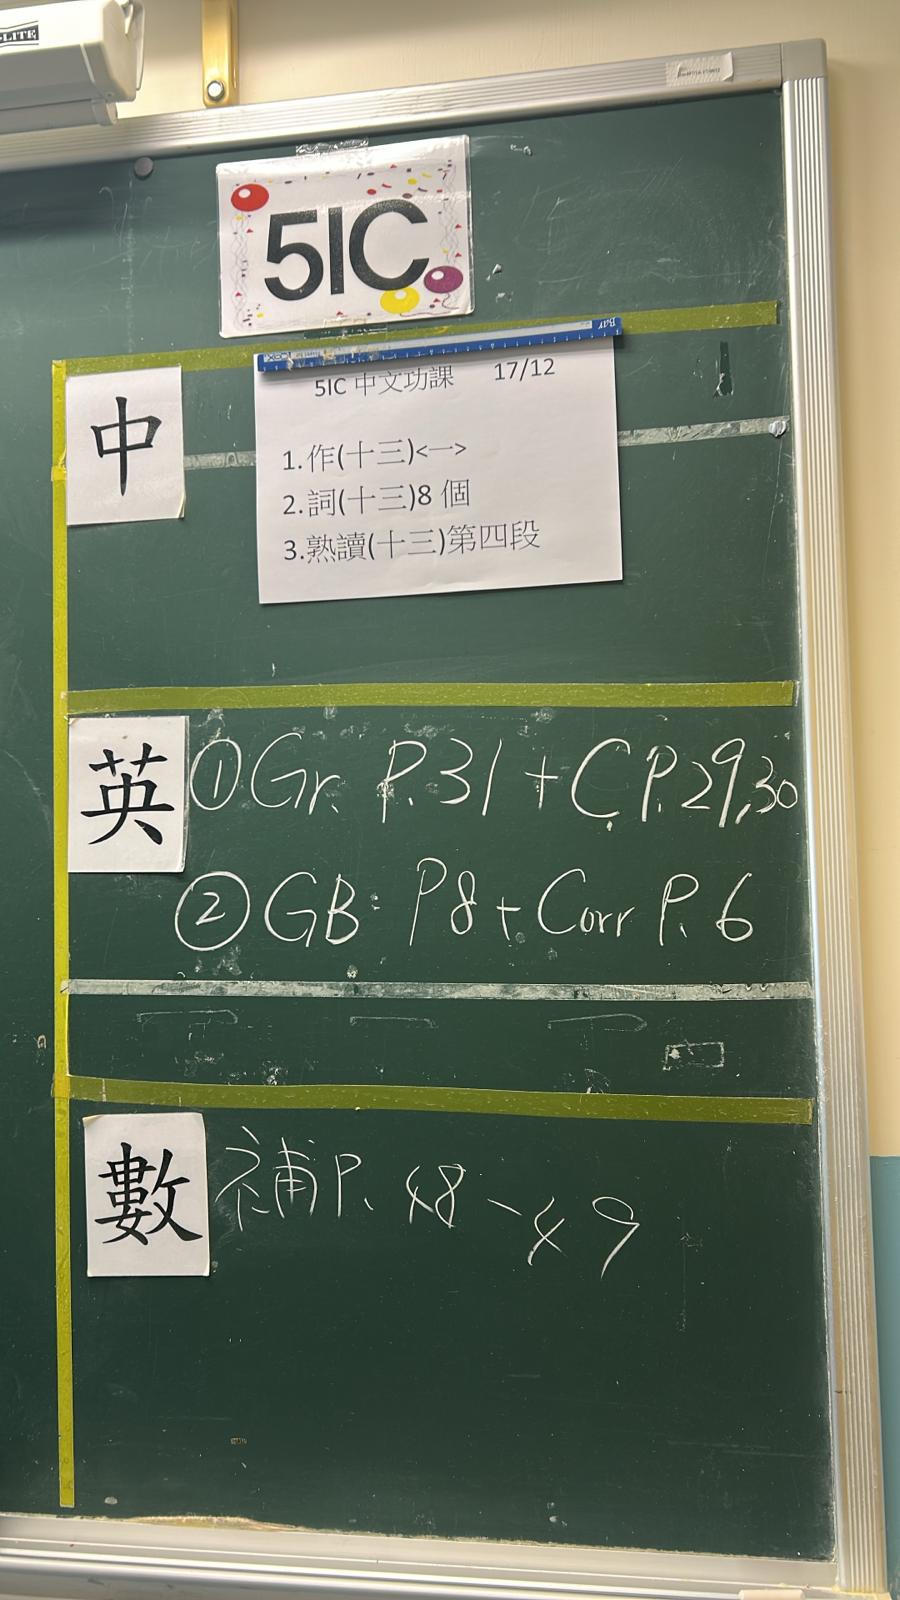 5IC
5IC 中文功課 17/12
中
1.作(十三)<一>
2.詞(十三)8 個
3.熟讀(十三)第四段
英
①Gr. P.31 + C P.29,30
②GB: P8 + Corr P. 6
數
補P. 48-49